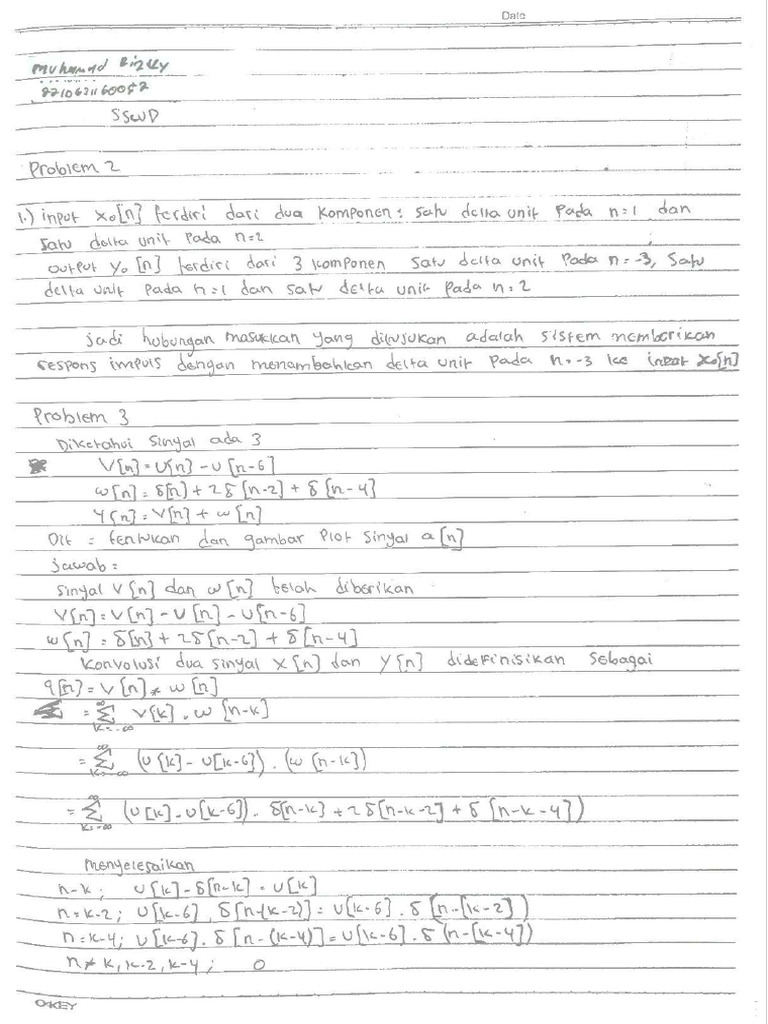 Date
Muhamad Rizky
2210631160052
SSWD
Problem 2
1.) input x₀[n] terdiri dari dua komponen: satu delta unit pada n=1 dan
satu delta unit pada n=2
output y₀[n] terdiri dari 3 komponen satu delta unit pada n=-3, satu
delta unit pada n=1 dan satu delta unit pada n=2
jadi hubungan masukkan yang ditujukan adalah sistem memberikan
respons impuls dengan menambahkan delta unit pada n=-3 ke input x₀[n]
Problem 3
Diketahui sinyal ada 3
V[n]=U[n]-U[n-6]
w[n]=δ[n]+2δ[n-2]+δ[n-4]
q[n]=V[n]*w[n]
Dit = tentukan dan gambar Plot sinyal a[n]
jawab =
sinyal V[n] dan w[n] telah diberikan
V[n]=V[n]-U[n]-U[n-6]
w[n]=δ[n]+2δ[n-2]+δ[n-4]
Konvolusi dua sinyal x[n] dan y[n] didefinisikan sebagai
q[n]=V[n]*w[n]
=∑ k=-∞ ∞ V[k].w[n-k]
=∑ k=-∞ ∞ (U[k]-U[k-6]).(w[n-k])
=∑ k=-∞ ∞ (U[k]-U[k-6]).δ[n-k]+2δ[n-k-2]+δ[n-k-4])
menyelesaikan
n-k; U[k]-δ[n-k]=U[k]
n=k-2; U[k-6].δ[n-(k-2)]=U[k-6].δ(n-[k-2])
n=k-4; U[k-6].δ[n-(k-4)]=U[k-6].δ(n-[k-4])
n≠k,k-2,k-4; 0
O-KEY